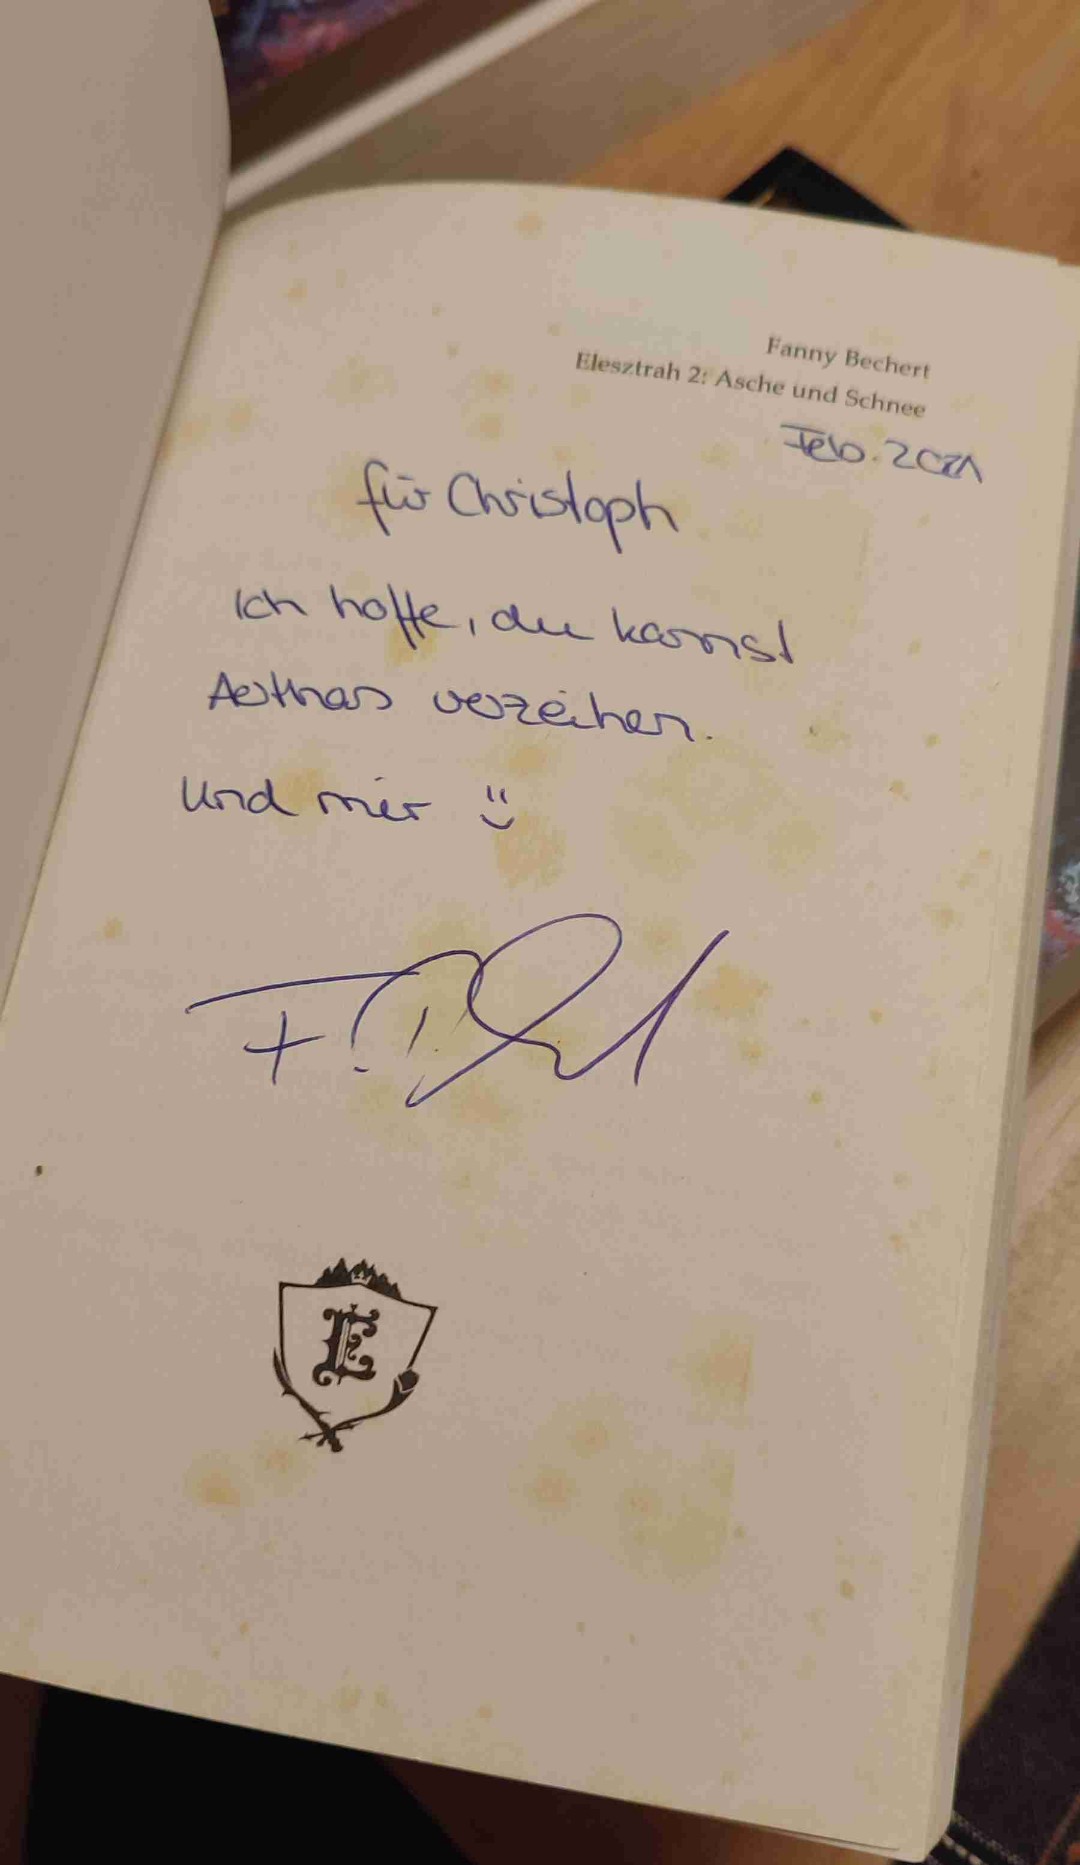 Fanny Bechert
Elesztrah 2: Asche und Schnee
Feb. 2021
für Christoph
Ich hoffe, du kannst
Aethas verzeihen.
Und mir
E